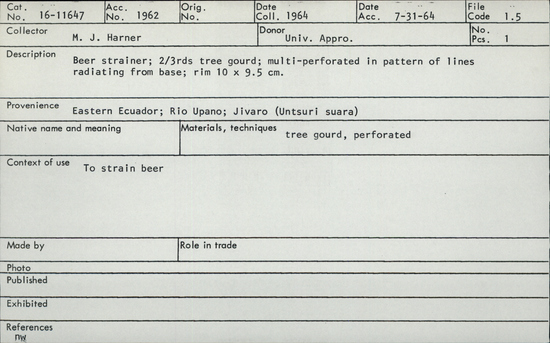 Cat. Acc. Orig. Date Date File
No. 16-11647 No. 1962 No. Coll. 1964 Acc. 7-31-64 Code 1.5
Collector Donor No.
M. J. Harner Univ. Appro. Pcs. 1
Description Beer strainer; 2/3rds tree gourd; multi-perforated in pattern of lines
radiating from base; rim 10 x 9.5 cm.
Provenience Eastern Ecuador; Rio Upano; Jivaro (Untsuri suara)
Native name and meaning Materials, techniques tree gourd, perforated
Context of use To strain beer
Made by Role in trade
Photo
Published
Exhibited
References
nw